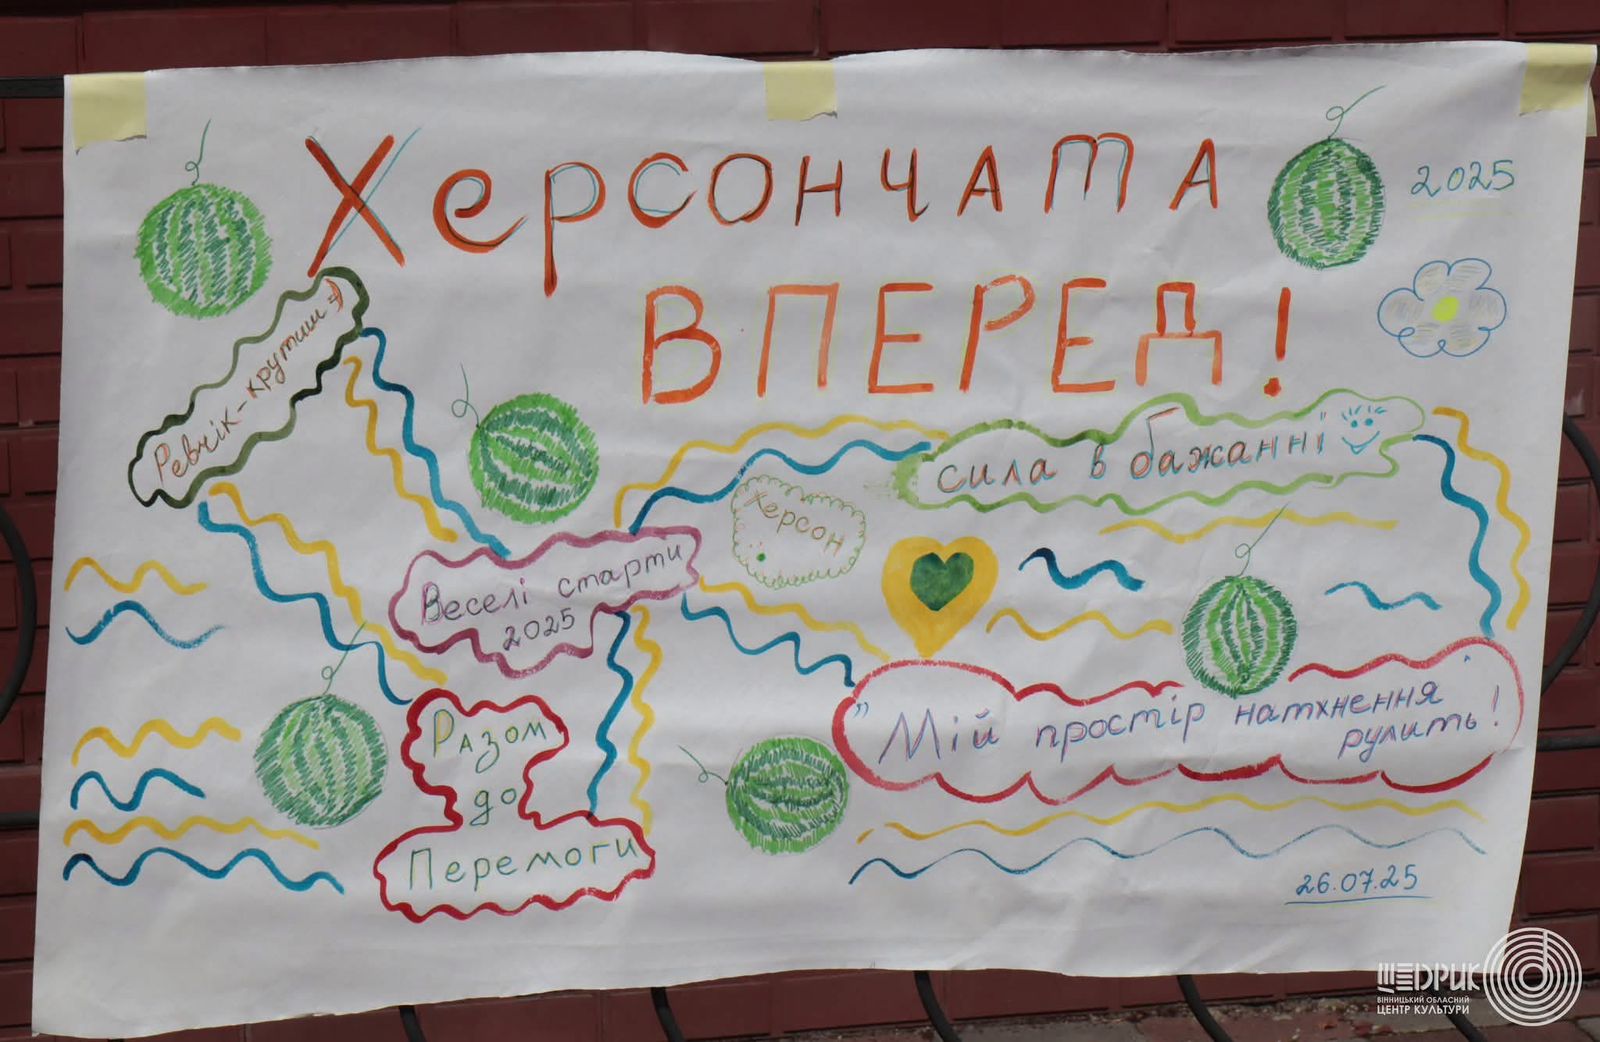 Херсончата
2025
ВПЕРЕД!
Ревчік-крутиш =)
сила в бажанні!
Херсон
Веселі старти
2025
Разом
до
Перемоги
"Мій простір натхнення
рулить"!
26.07.25
ЩЕДРИК
ВІННИЦЬКИЙ ОБЛАСНИЙ
ЦЕНТР КУЛЬТУРИ